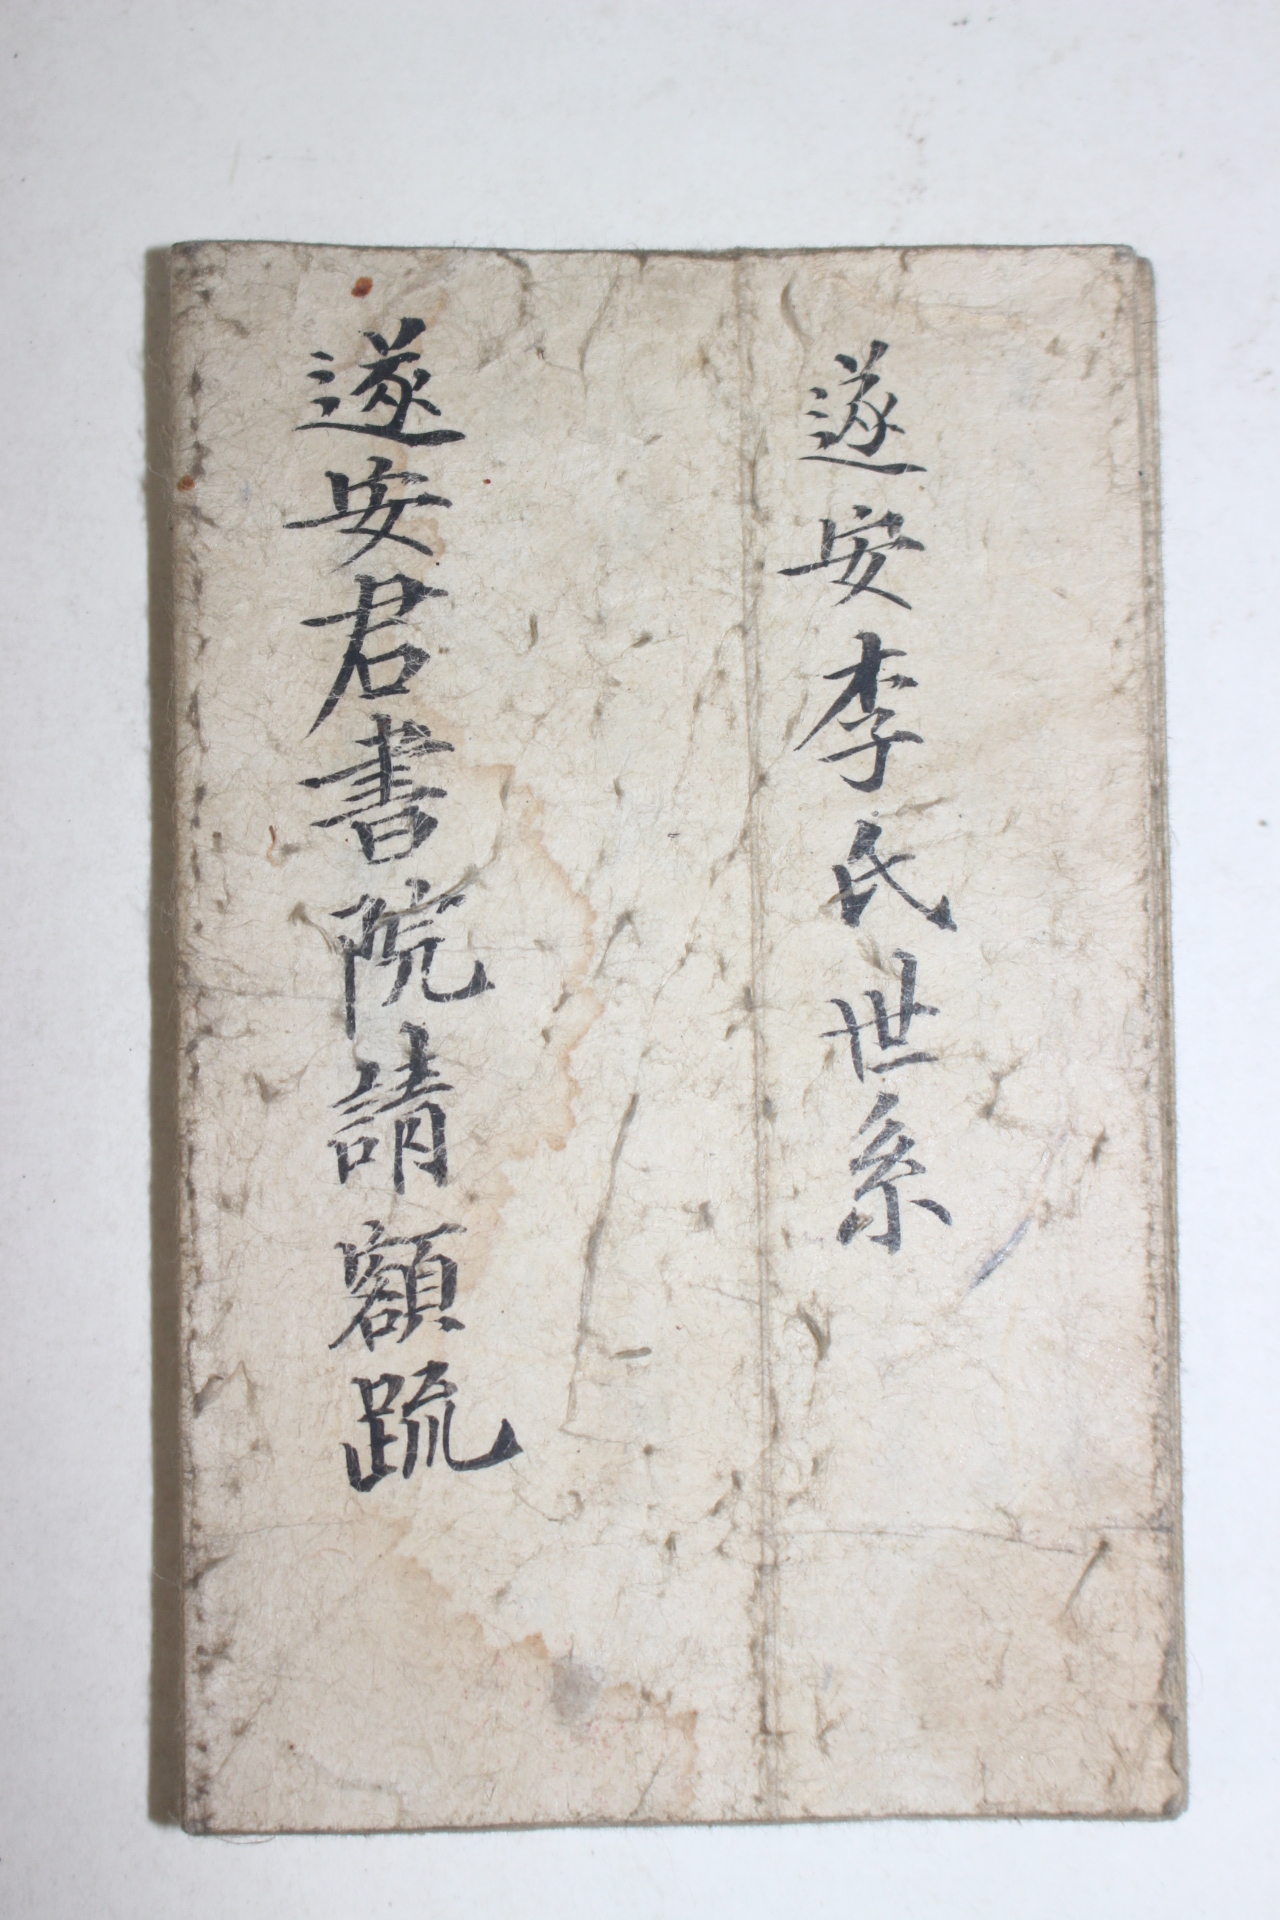 遂安李氏世系
遂安君書院請額疏